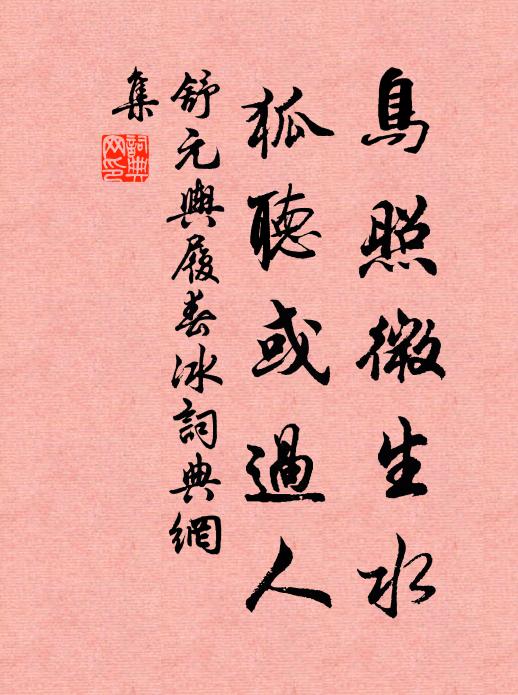 鳥照微生水
狐聽或過人
舒元輿履春冰詞典網
集
詞典
网印